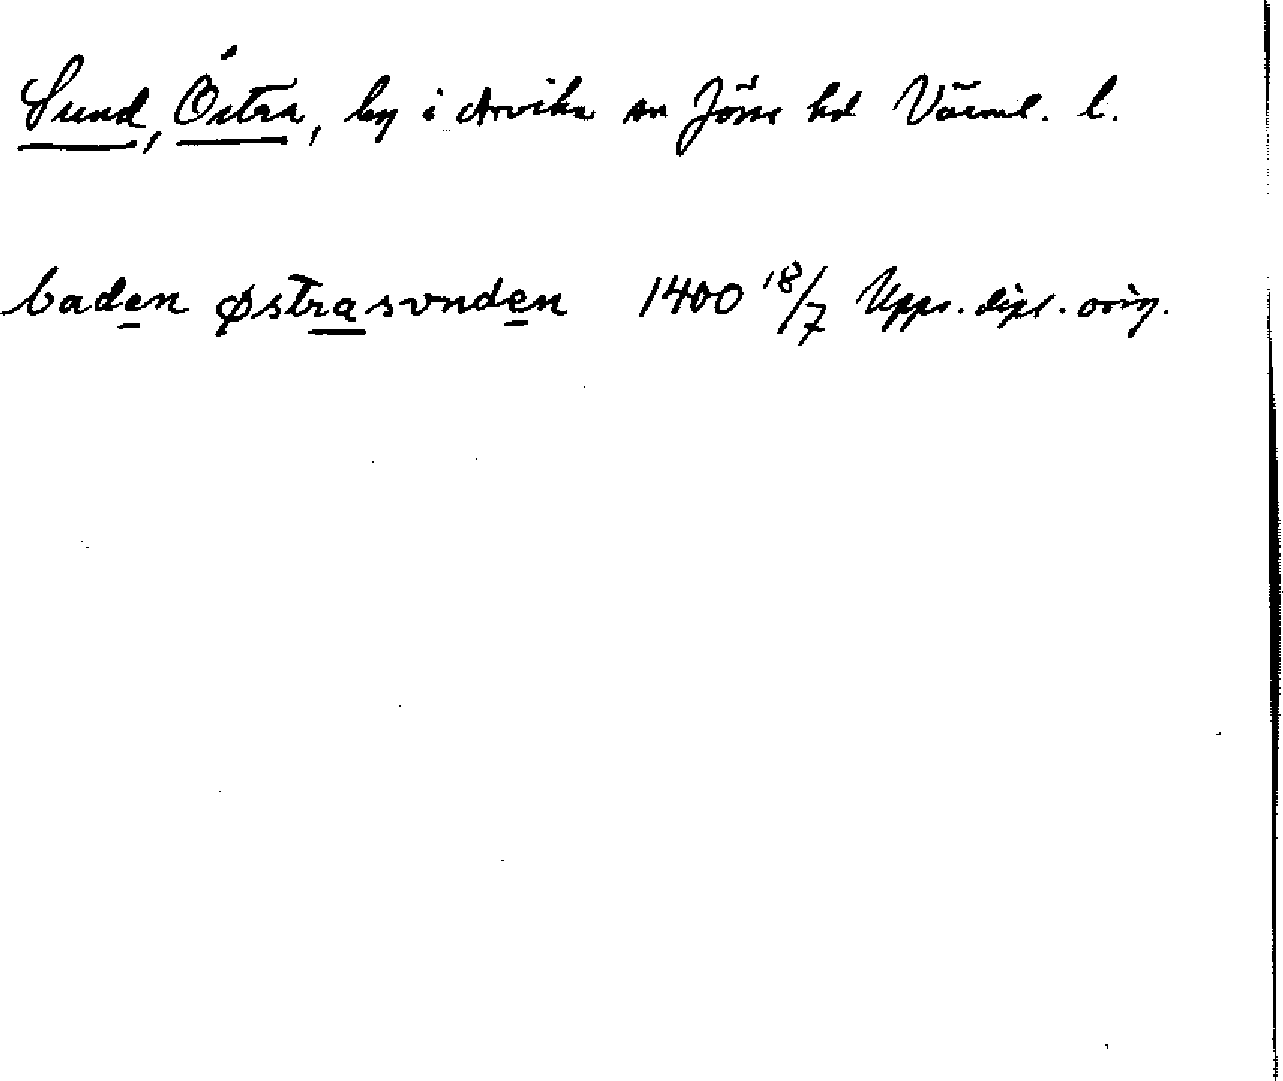 Sund, Östra, by i Arvika sn Jösse hd Värml. l.
baden østrasvnden 1400 18/7 Upps. dipl. orig.